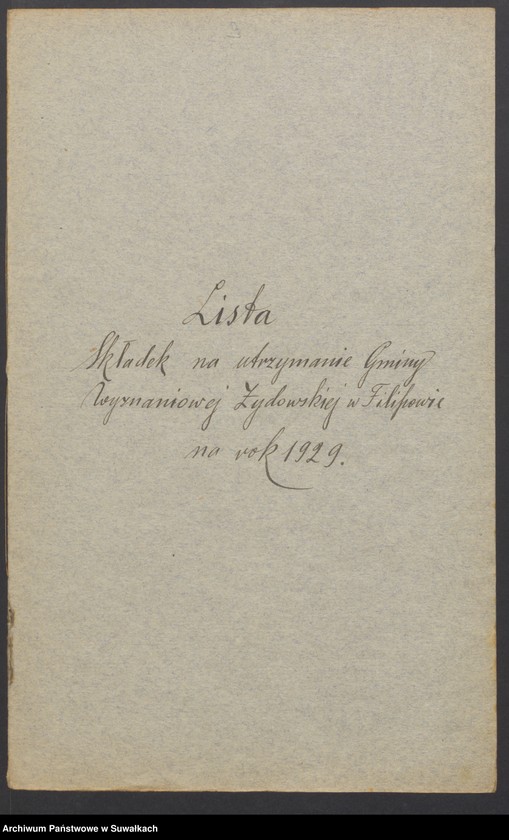 2
Lista
Składek na utrzymanie Gminy
Wyznaniowej Żydowskiej w Filipowie
na rok 1929.
Archiwum Państwowe w Suwałkach